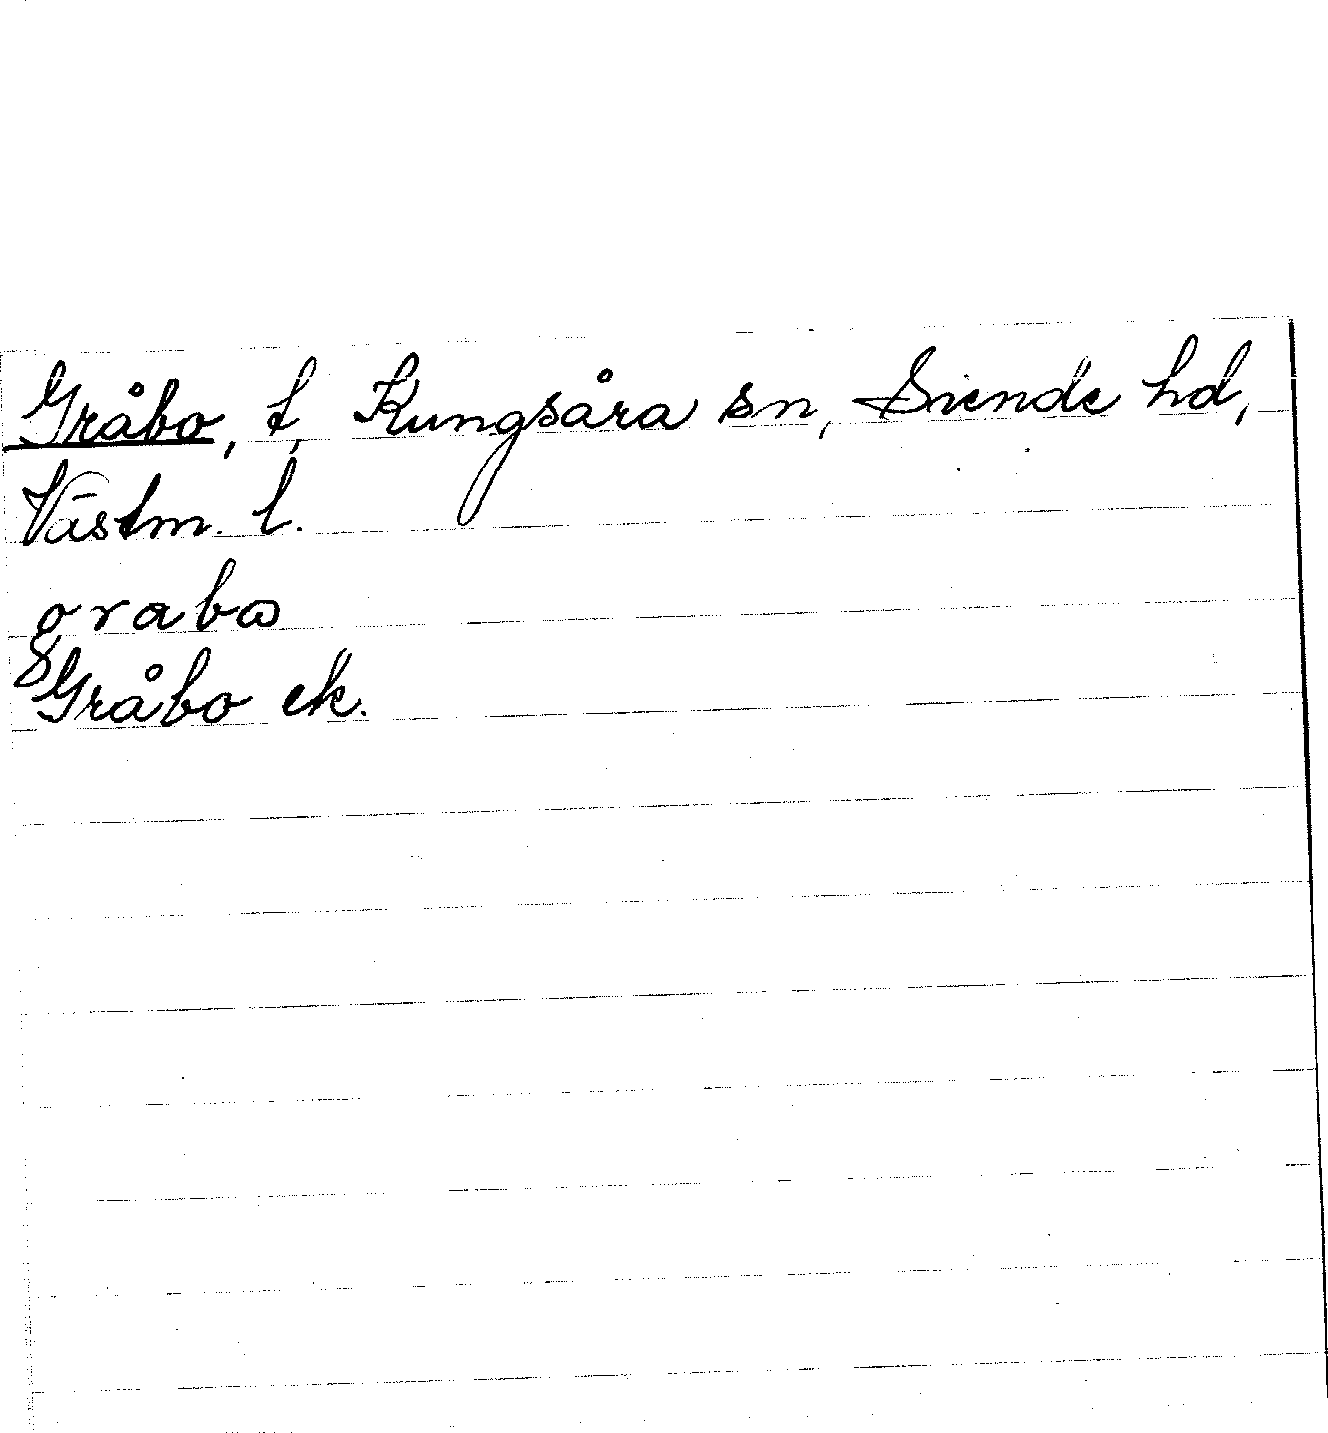 Gråbo, t, Kungsåra sn, Siende hd,
Västm. l.
grabω
Gråbo ek.